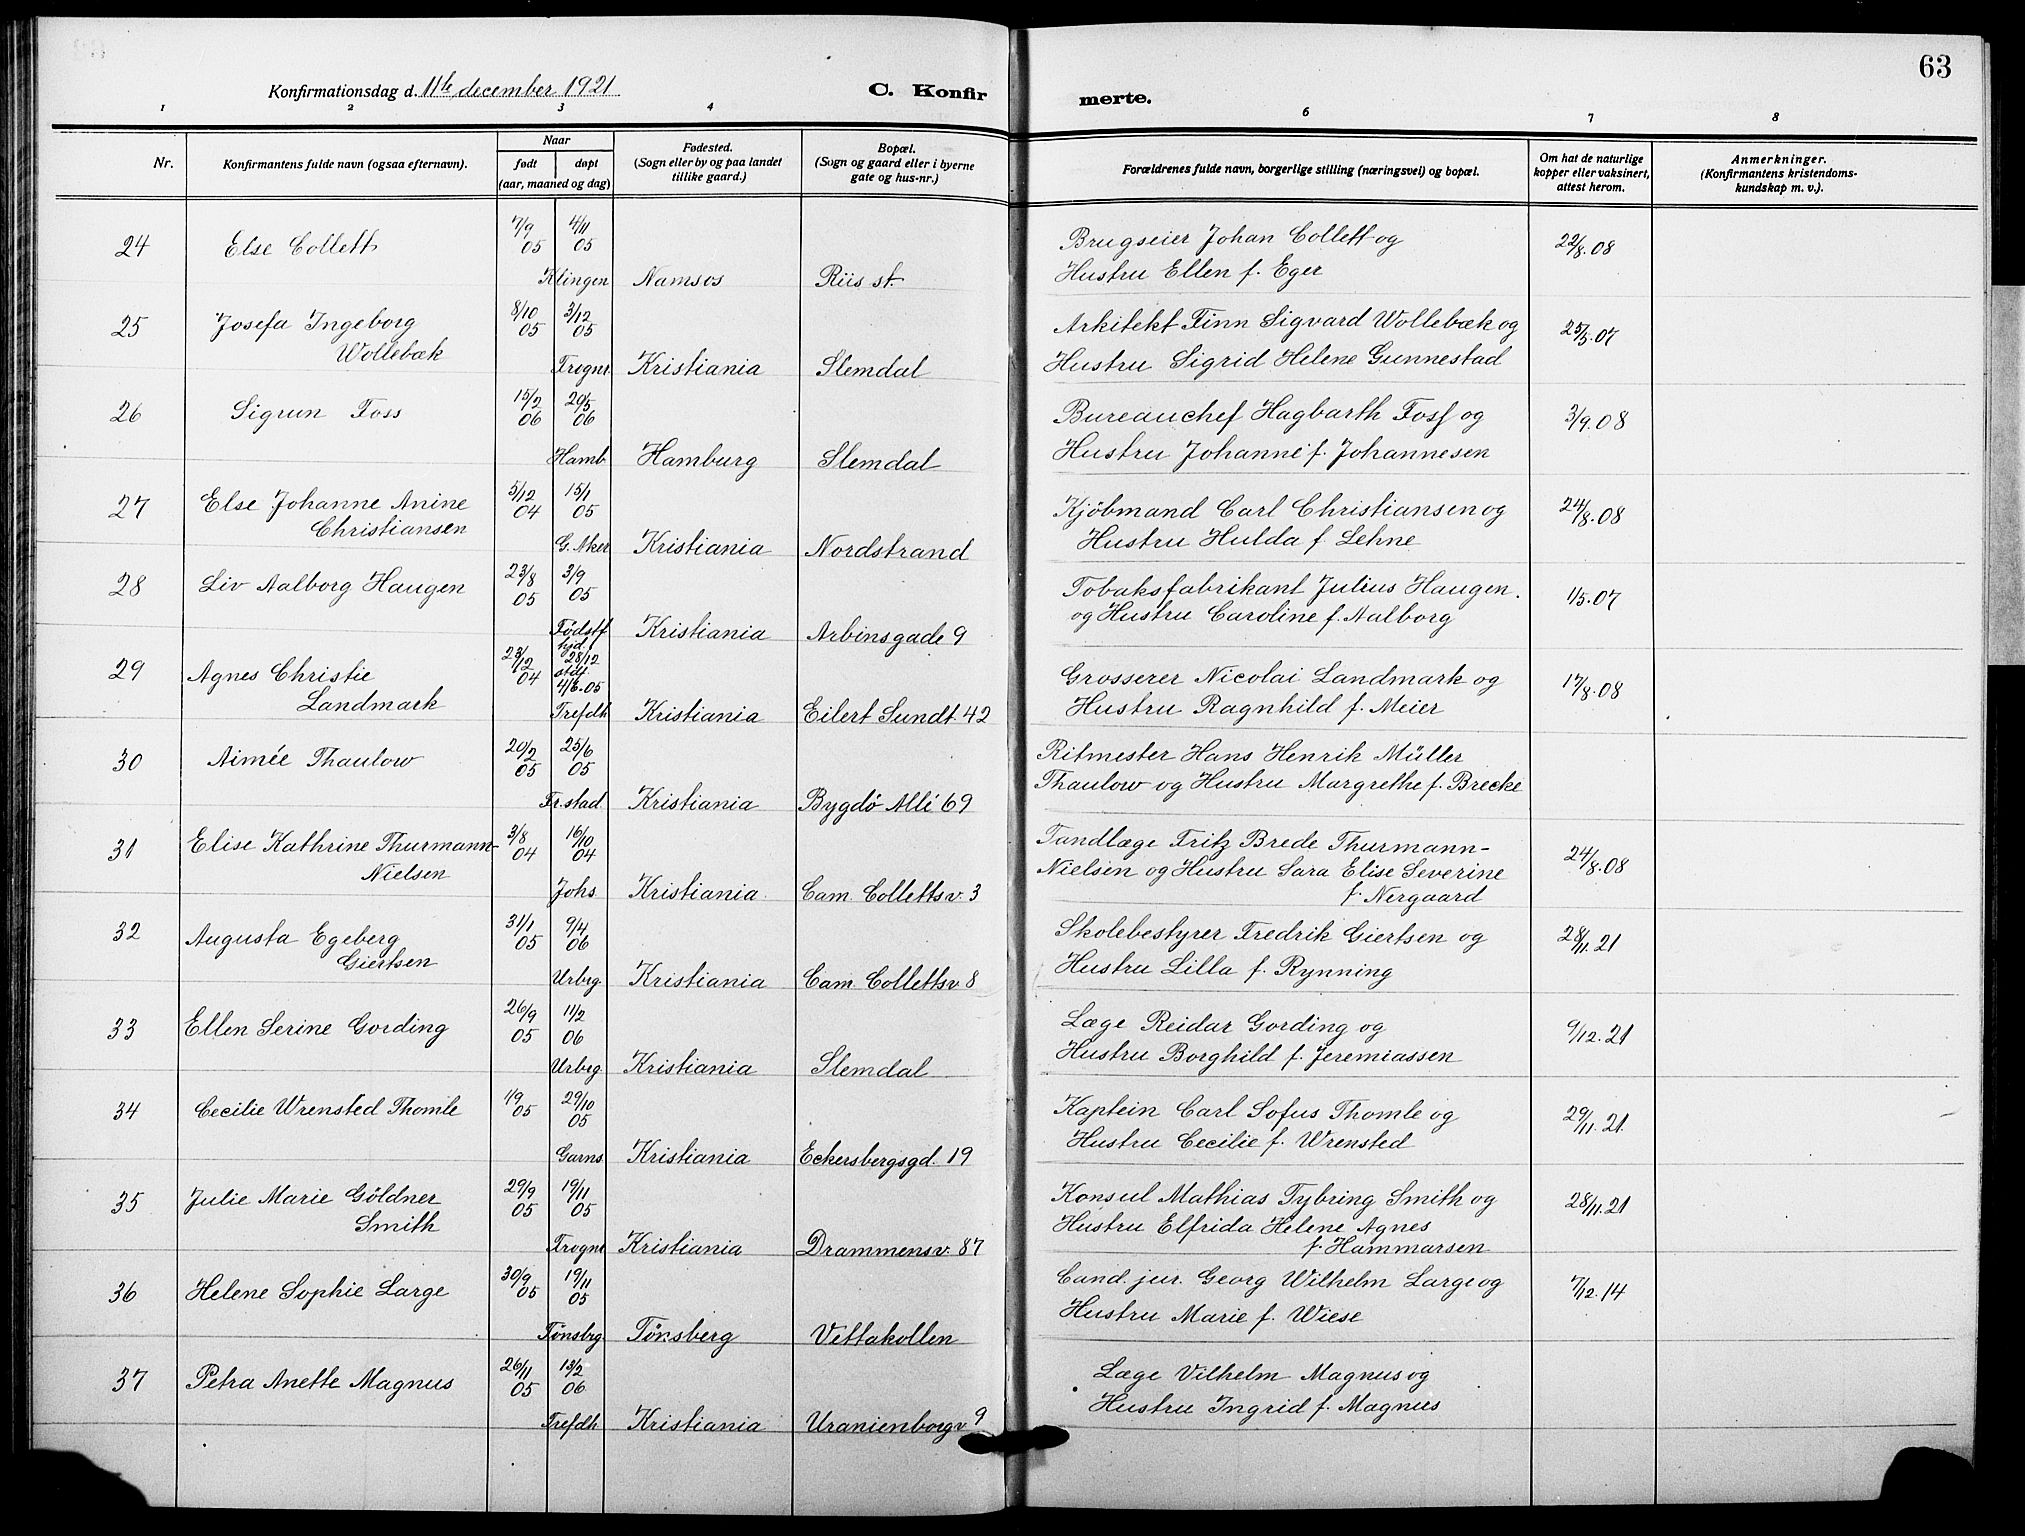 63
Konfirmationsdag d. 11te december 1921
C. Konfir
merte.
1 2 3 4 6 7 8
Nr.
Konfirmantens fulde navn (ogsaa efternavn).
Naar
født døpt
(aar, maaned og dag)
Fødested.
(Sogn eller by og paa landet
tillike gaard.)
Bopæl.
(Sogn og gaard eller i byerne
gate og hus-nr.)
Forældrenes fulde navn, borgerlige stilling (næringsvei) og bopæl.
Om hat de naturlige
kopper eller vaksinert,
attest herom.
Anmerkninger.
(Konfirmantens kristendoms-
kundskap m. v.).
24 Else Collett 7/9 05 4/11 05 Brugseier Johan Collett og 22/8.08
Klingen Namsos Riis st. Hustru Ellen f. Eger
25 Josefa Ingeborg 8/10 05 3/12 05 Arkitekt Finn Sigvard Wollebæk og 25/5.07
Wollebæk Trogns Kristiania Slemdal Hustru Sigrid Helene Gunnestad
26 Sigrun Foss 15/2 06 20/5 06 Bureauchef Hagbarth Foss og 3/9.08
Hamb. Hamburg Slemdal Hustru Johanne f. Johannesen
27 Else Johanne Anine 5/12 04 15/1 05 Kjöbmand Carl Christiansen og 24/8.08
Christiansen G. Aker Kristiania Nordstrand Hustru Hulda f. Lehne
28 Liv Aalborg Haugen 23/8 05 3/9 05 Tobaksfabrikant Julius Haugen 1/5.07
Fødstf Kristiania Arbinsgade 9 og Hustru Caroline f. Aalborg
29 Agnes Christie 23/12 04 hjd. 28/12 stdf. 4/6.05 Grosserer Nicolai Landmark og 17/8.08
Landmark Trefdh Kristiania Eilert Sundt. 42 Hustru Ragnhild f. Meier
30 Aimée Thaulow 20/2 05 25/6 05 Ritmester Hans Henrik Müller
Fr.stad Kristiania Bygdö Allé 69 Thaulow og Hustru Margrethe f. Brecke
31 Elise Kathrine Thurmann- 3/8 04 16/10 04 Tandlæge Fritz Brede Thurmann- 24/8.08
Nielsen Johs Kristiania Cam. Colletts v. 3 Nielsen og Hustru Sara Elise Severine
f. Nergaard
32 Augusta Egeberg 31/1 05 9/4 06 Skolebestyrer Fredrik Giertsen og 28/11.21
Giertsen Urbrg. Kristiania Cam. Colletts v. 8 Hustru Lilla f. Rynning
33 Ellen Serine Gording 26/9 05 11/2 06 Læge Reidar Gording og 9/12.21
Urbrg Kristiania Slemdal Hustru Borghild f. Jeremiassen
34 Cecilie Wrensted Thomle 1/9 05 29/10 05 Kaptein Carl Sofus Thomle og 29/11.21.
Garns. Kristiania Eckersbergsgd. 19 Hustru Cecilie f. Wrensted
35 Julie Marie Göldner 29/9 05 19/11 05 Konsul Mathias Tybring Smith og 28/11.21
Smith Trogns Kristiania Drammensv. 87 Hustru Elfrida Helene Agnes
f. Hammarsen
36 Helene Sophie Large 30/9 05 19/11 05 Cand. jur. Georg Wilhelm Large og 7/12.14
Tönsbrg. Tönsberg Vettakollen Hustru Marie f. Wiese
37 Petra Anette Magnus 26/11 05 13/2 06 Læge Vilhelm Magnus og
Trefdh Kristiania Uranienborgv 9 Hustru Ingrid f. Magnus